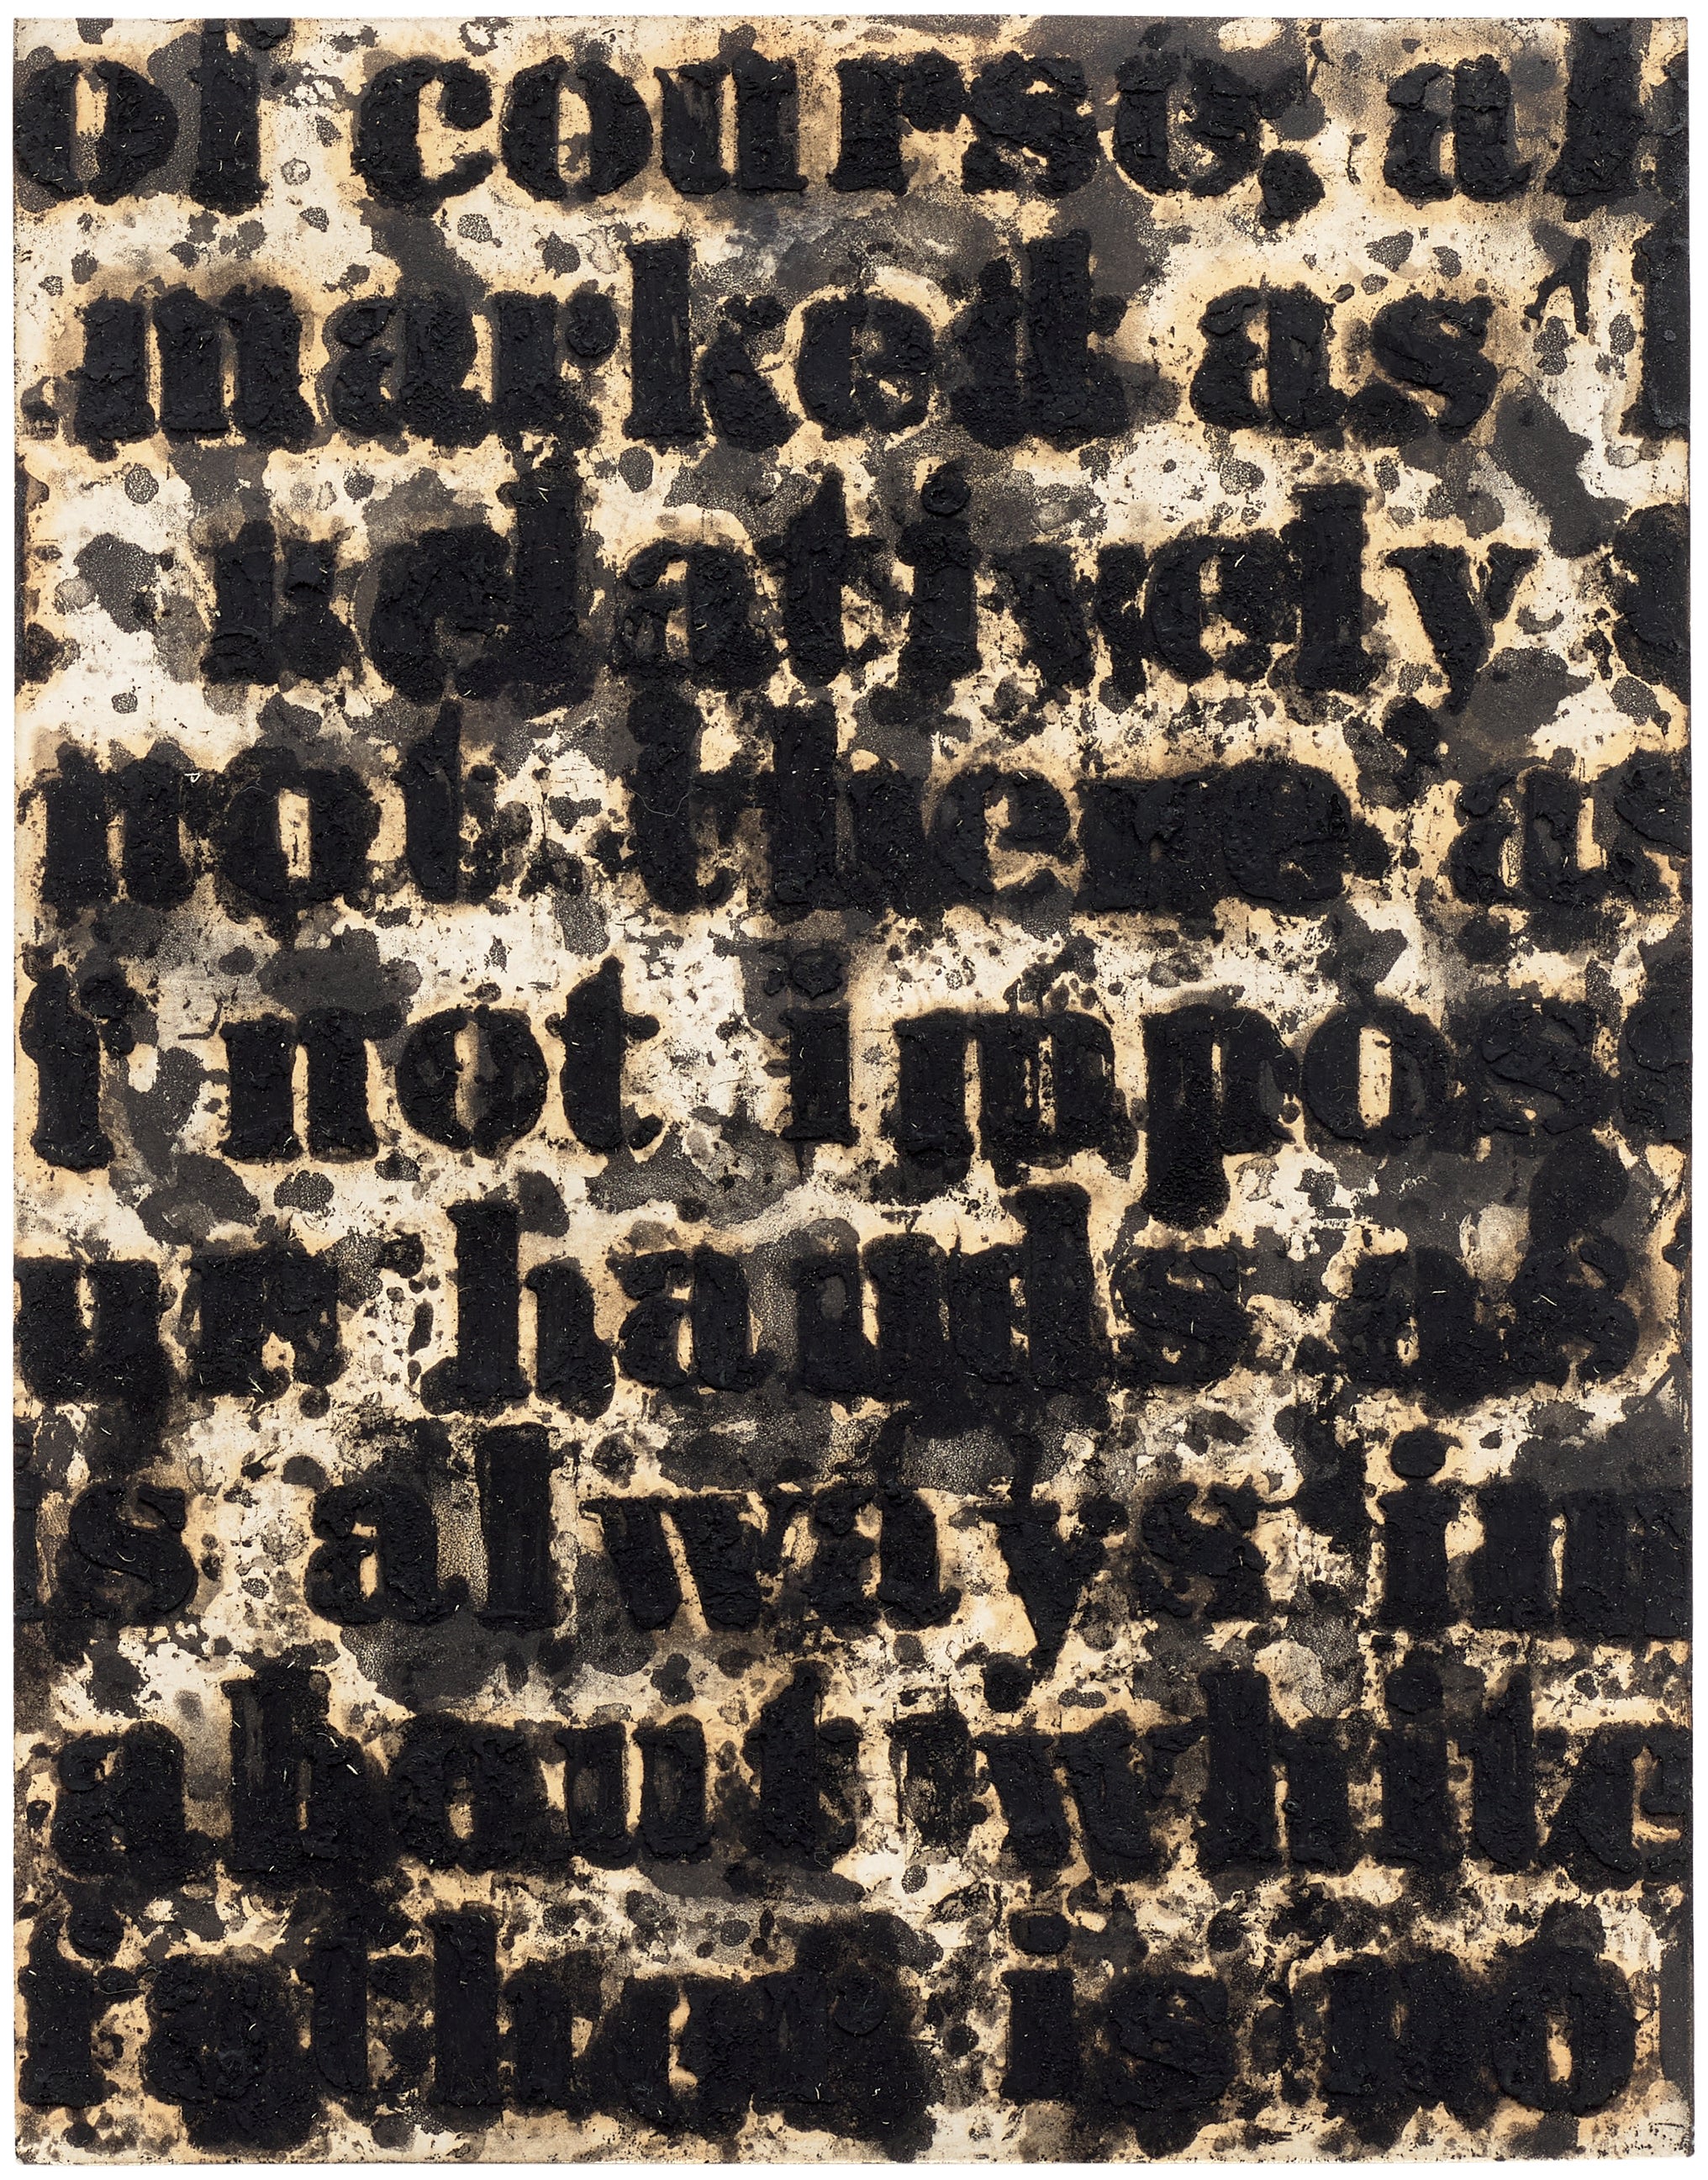 of course, al
marked as l
relatively
not there as
f not imposs
ur hands as
is always in
about white
rather is no